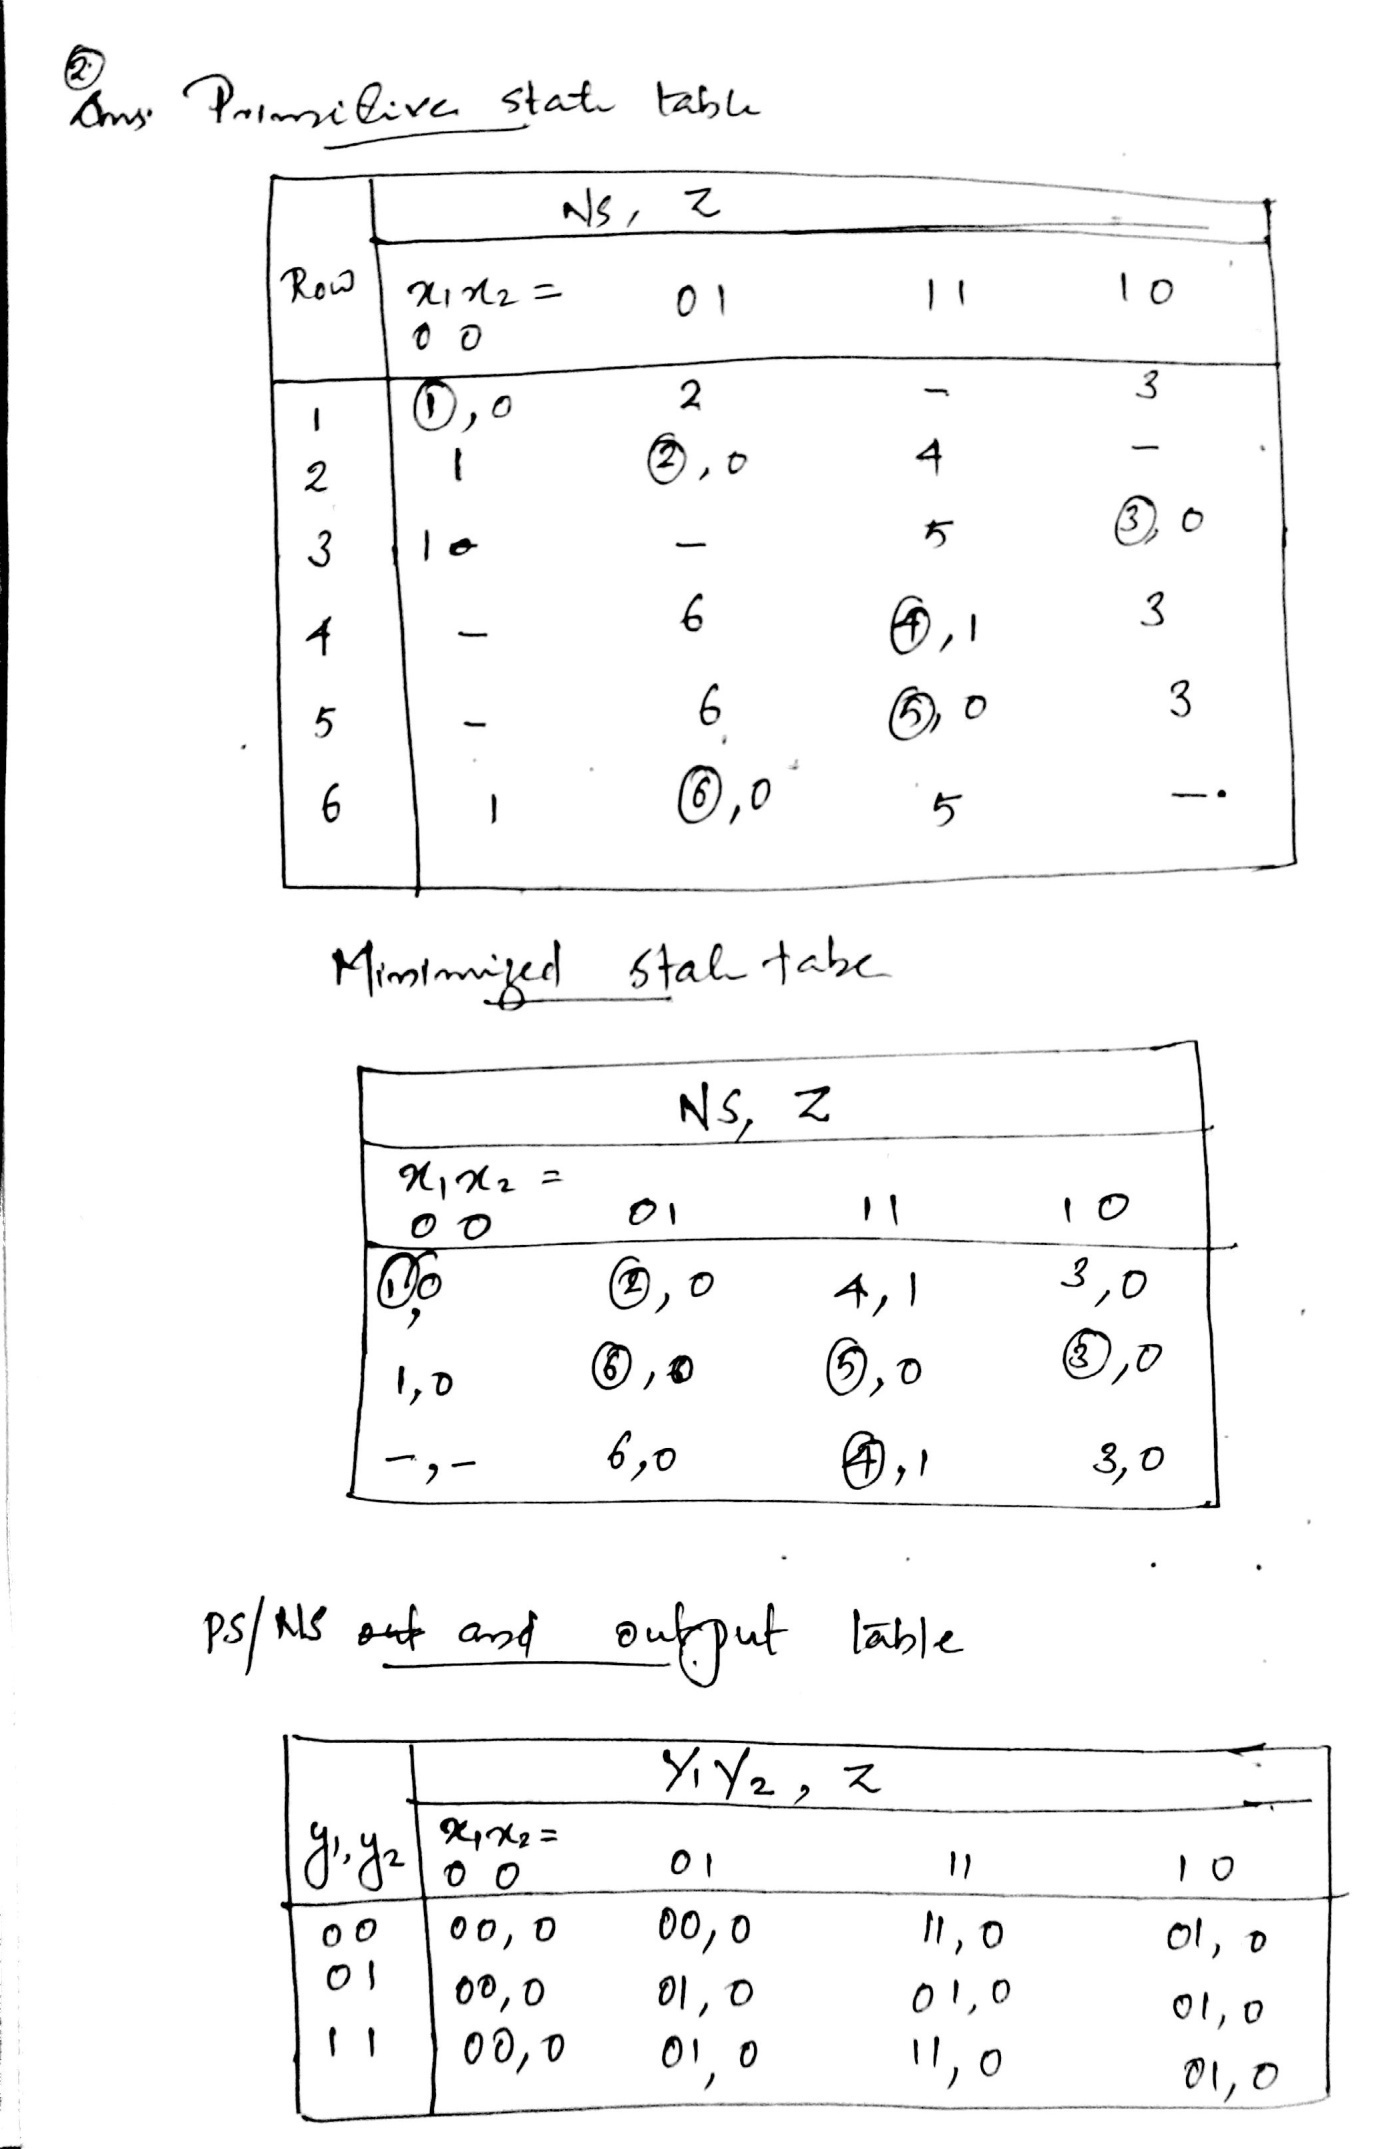 2.
Ans. Primitive state table
NS, Z
Row x1x2 = 00 01 11 10
1 ①,0 2 - 3
2 1 ②,0 4 -
3 1 - 5 ③,0
4 - 6 ④,1 3
5 - 6 ⑤,0 3
6 1 ⑥,0 5 -.
Minimized state tabe
NS, Z
x1x2 = 00 01 11 10
①,0 ②,0 4,1 3,0
1,0 ⑥,0 ⑤,0 ③,0
-,- 6,0 ④,1 3,0
PS/NS out and output table
Y1Y2, Z
y1,y2 x1x2 = 00 01 11 10
00 00,0 00,0 11,0 01,0
01 00,0 01,0 01,0 01,0
11 00,0 01,0 11,0 01,0